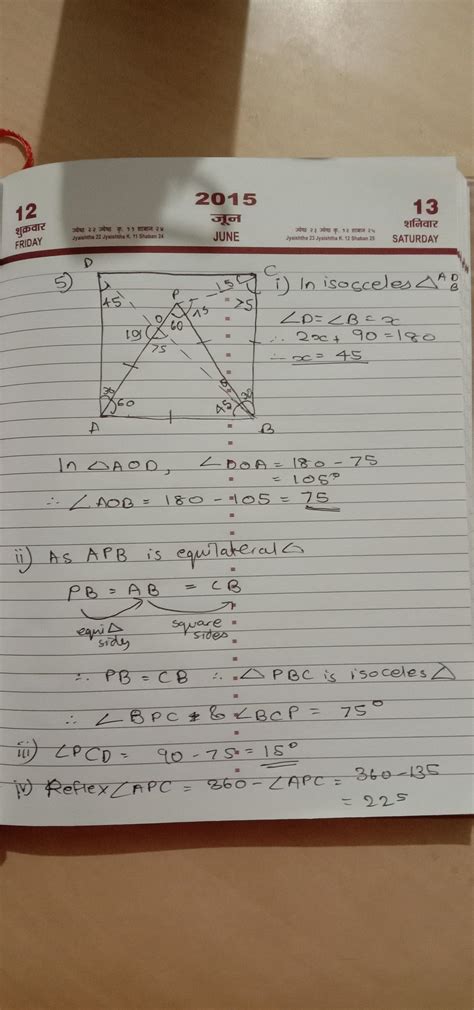 12
शुक्रवार
FRIDAY
ज्येष्ठ २२ ज्येष्ठ कृ. ११ शाबान २४
Jyaishtha 22 Jyaishtha K. 11 Shaban 24
2015
जून
JUNE
ज्येष्ठ २३ ज्येष्ठ कृ. १२ शाबान २५
Jyaishtha 23 Jyaishtha K. 12 Shaban 25
13
शनिवार
SATURDAY
5)
D
C
45
P
15
75
O
60
75
75
60
45
30
A
B
i) In isosceles △ADB
∠D = ∠B = x
∴ 2x + 90 = 180
∴ x = 45
In △AOD, ∠DOA = 180 - 75
= 105°
∴ ∠AOB = 180 - 105 = 75
ii) As APB is equilateral △
PB = AB = CB
equi△ sides
square sides
∴ PB = CB ∴ △ PBC is isoceles △
∴ ∠BPC = ∠BCP = 75°
iii) ∠PCD = 90 - 75 = 15°
iv) Reflex ∠APC = 360 - ∠APC = 360 - 135
= 225